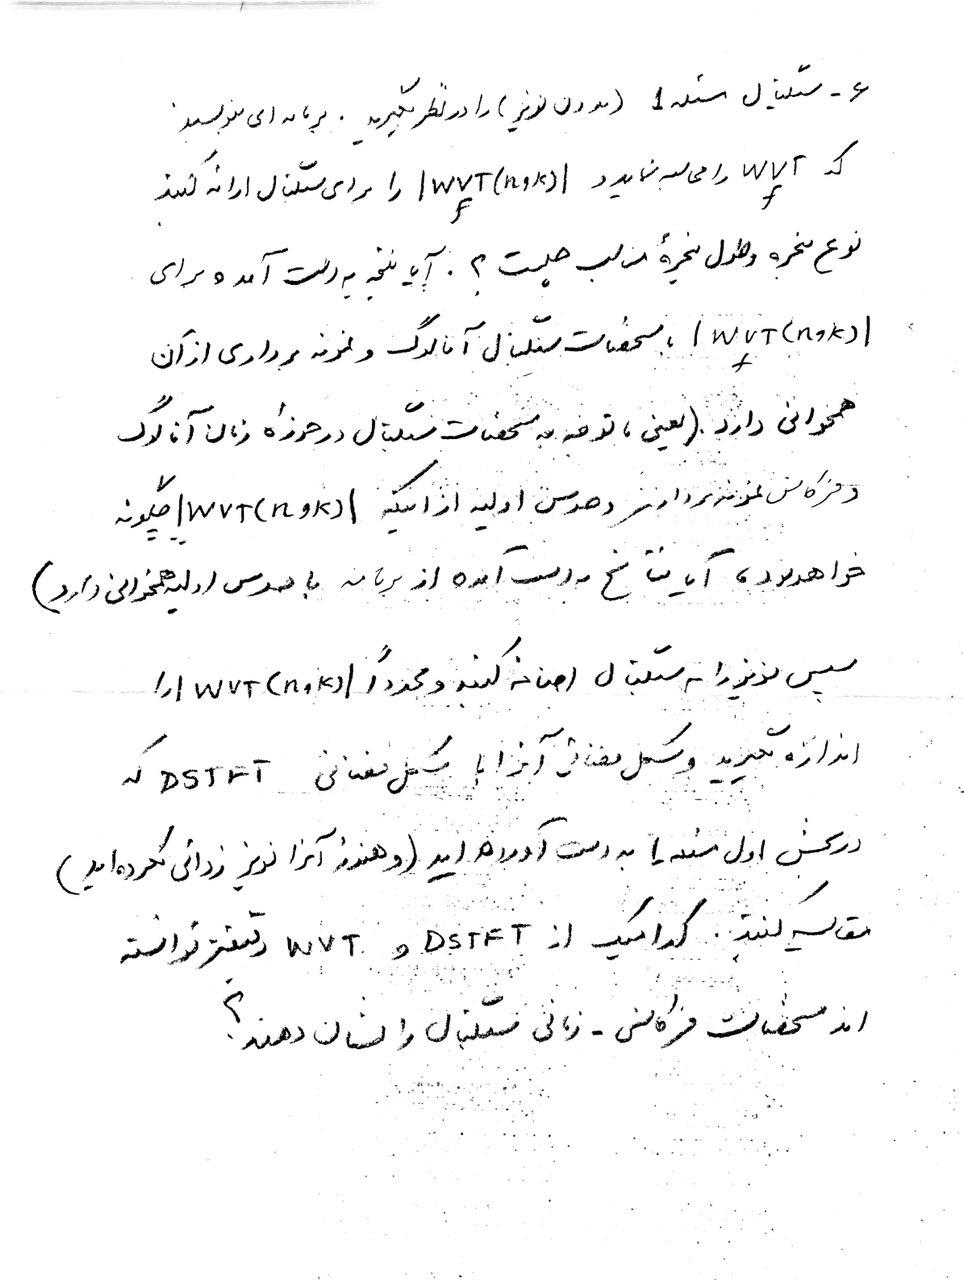 ۶- سیگنال مسئله 1 (بدون نویز) را در نظر بگیرید. برنامه ای بنویسید
که WVT f را محاسبه نماید و |WVT(n,k)| f را برای سیگنال ارائه کنید
نوع پنجره و طول پنجرهٔ مناسب چیست؟. آیا نتیجه به دست آمده برای
|WVT(n,k)| f با مشخصات سیگنال آنالوگ و نمونه برداری از آن
همخوانی دارد. (یعنی با توجه به مشخصات سیگنال در حوزه زمان آنالوگ
و فرکانس نمونه برداری و حدس اولیه از اینکه |WVT(n,k)| چگونه
خواهد بود، آیا نتایج به دست آمده از برنامه با حدس اولیه همخوانی دارد)
سپس نویز را به سیگنال اضافه کنید و مجدداً |WVT(n,k)| را
اندازه بگیرید و شکل فضائی آنرا با شکل فضائی DSTFT که
در بخش اول مسئله 1 به دست آورده اید (و هنوز آنرا نویز زدائی نکرده اید)
مقایسه کنید. کدامیک از DSTFT و WVT دقیقتر توانسته
اند مشخصات فرکانسی - زمانی سیگنال را نشان دهند؟